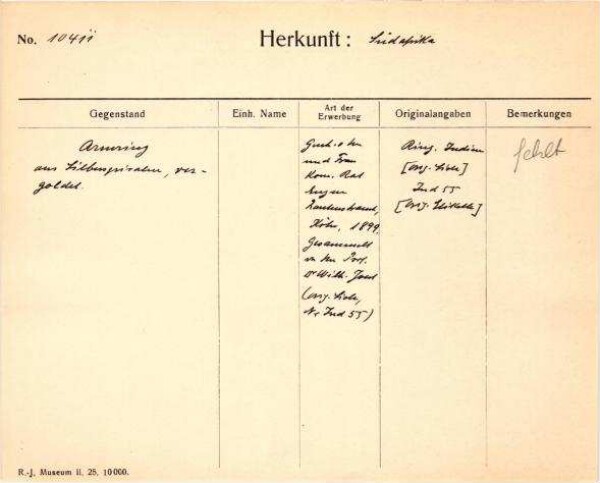 No. 10411
Herkunft: Südafrika
Gegenstand
Einh. Name
Art der
Erwerbung
Originalangaben
Bemerkungen
Armring
aus Silberspiralen, ver-
goldet.
und Frau
Kom. Rat
Eugen
Rautenstrauch,
Köln, 1899.
Gesammelt
v. Prof.
Dr Wilh. Joest
(orig. Liste,
Nr Ind 55)
Ring. Indien
[orig. Liste]
Ind 55
[orig. Etikette]
fehlt
R.-J. Museum II. 25. 10000.